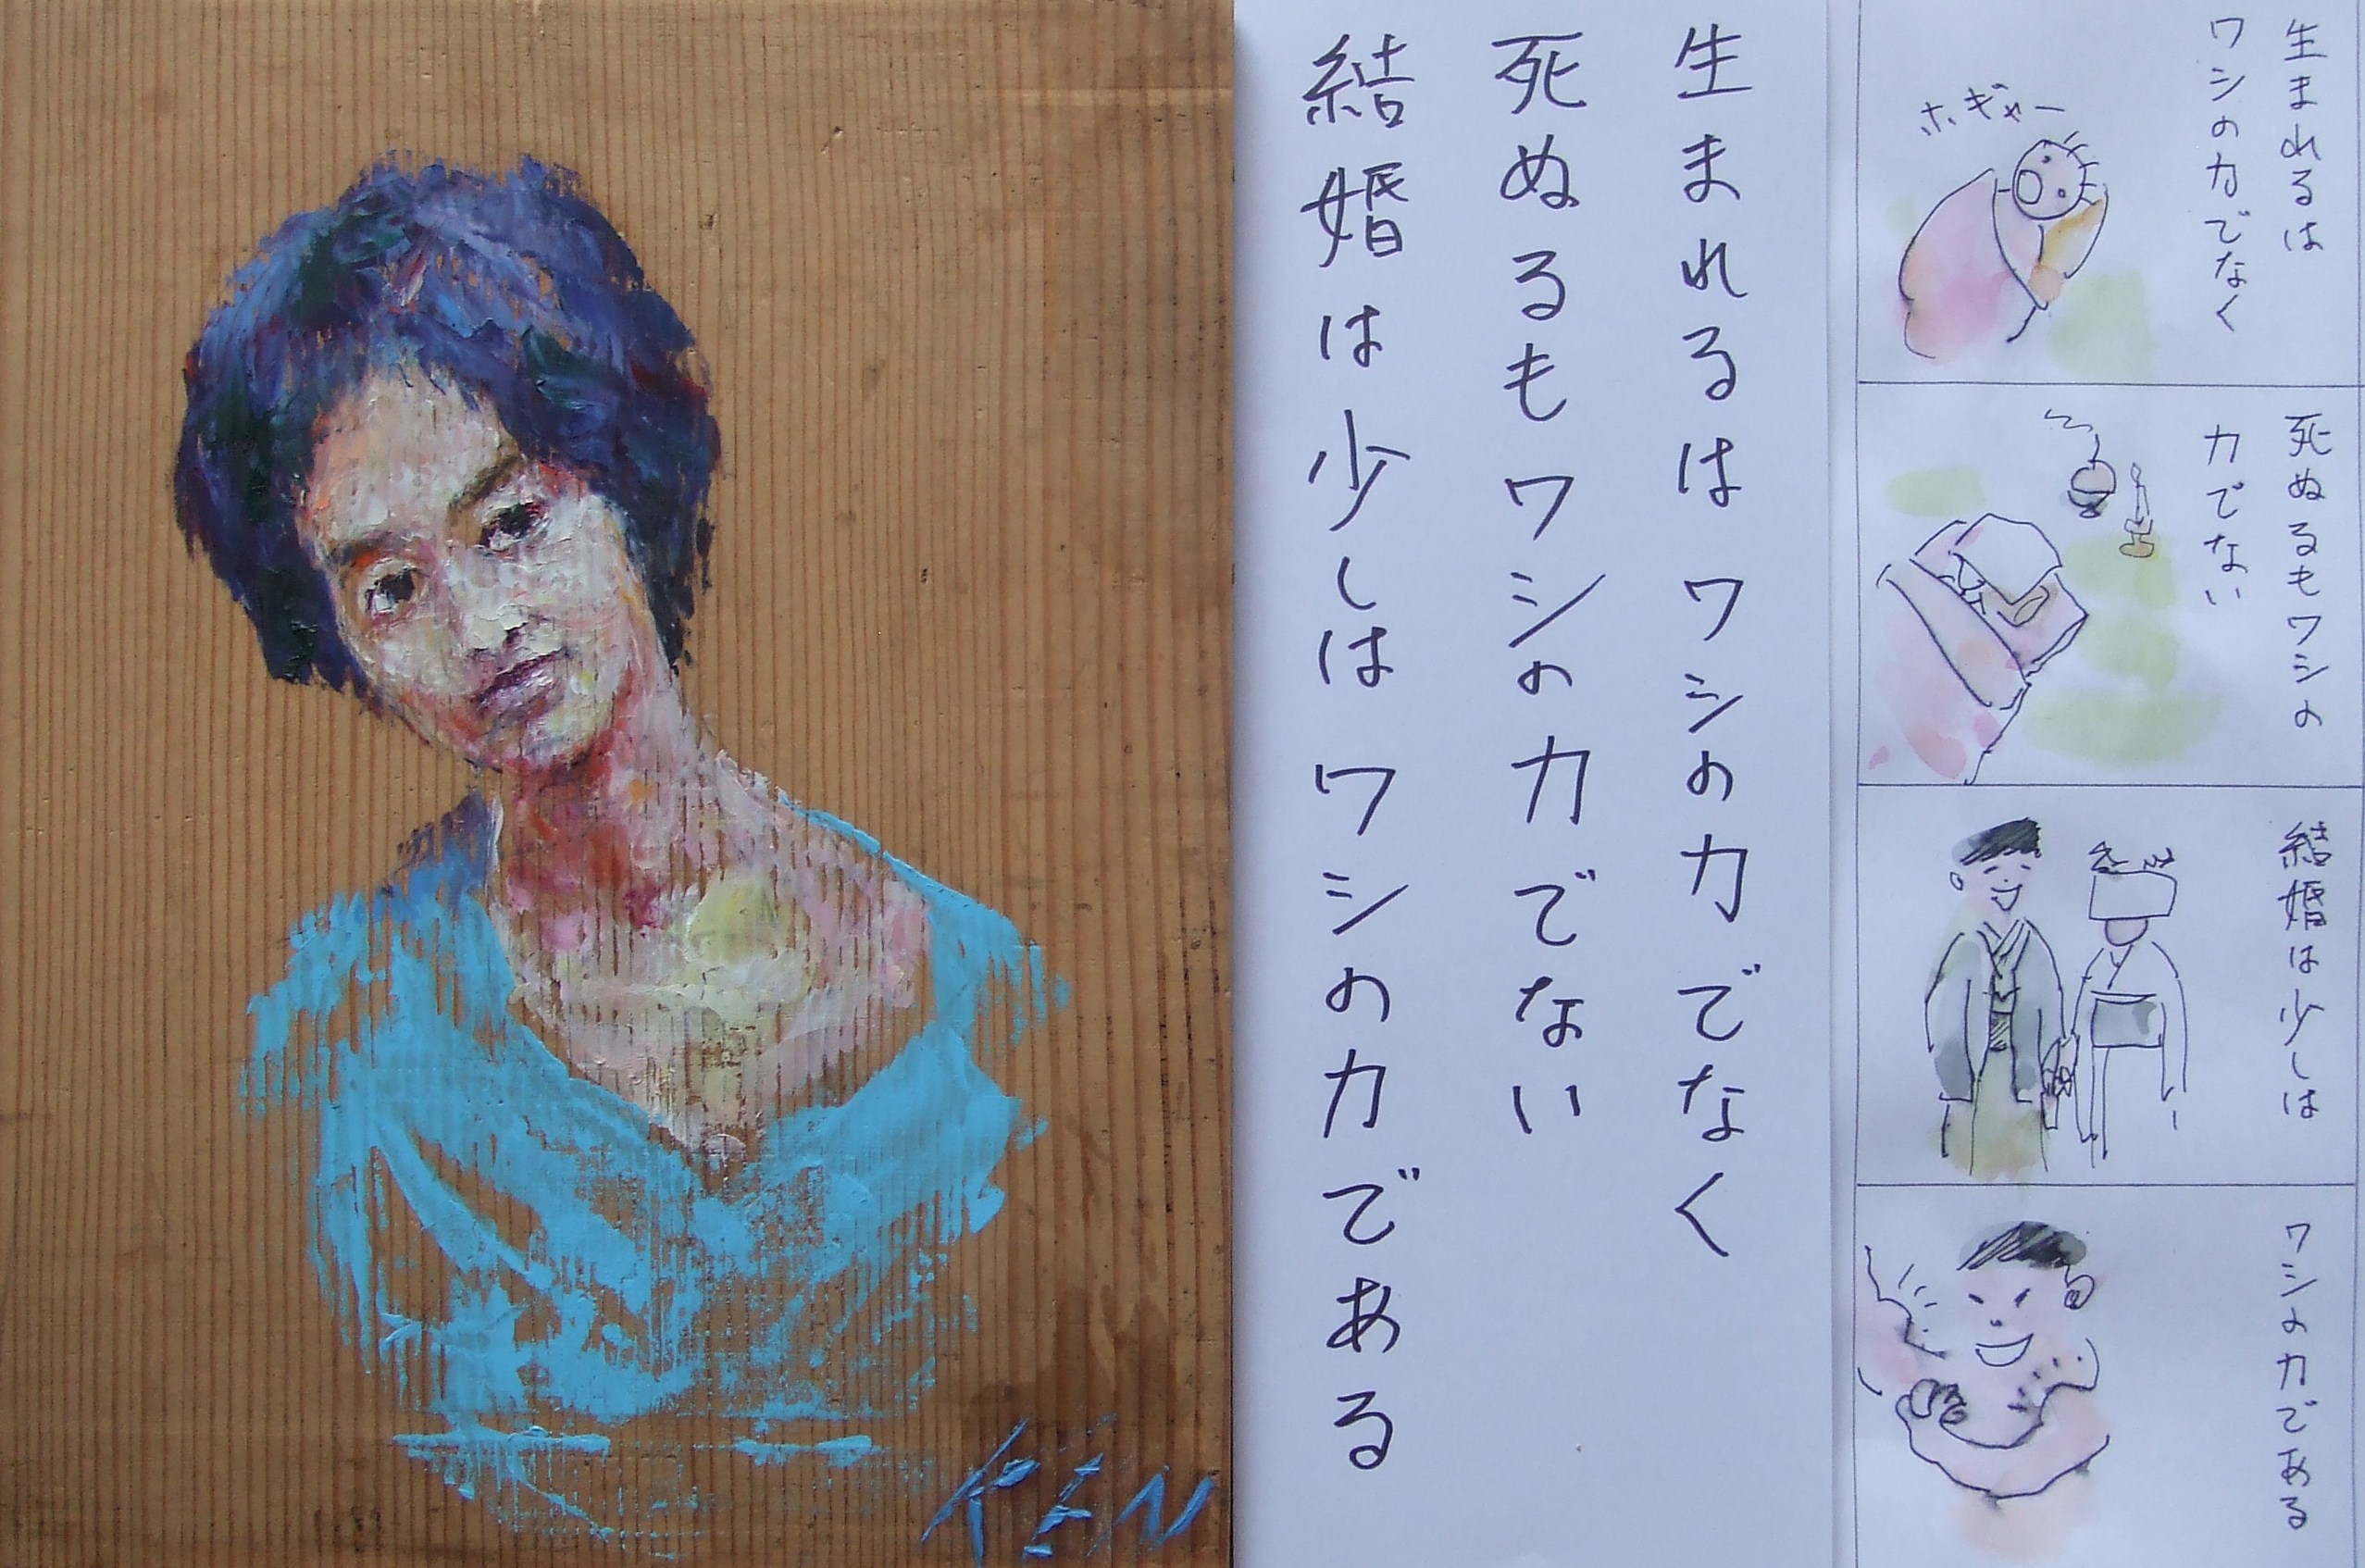 生まれるはワシの力でなく
死ぬるもワシの力でない
結婚は少しはワシの力である
生まれるは
ワシの力でなく
ホギャー
死ぬるもワシの
力でない
結婚は少しは
ワシの力である
KEN